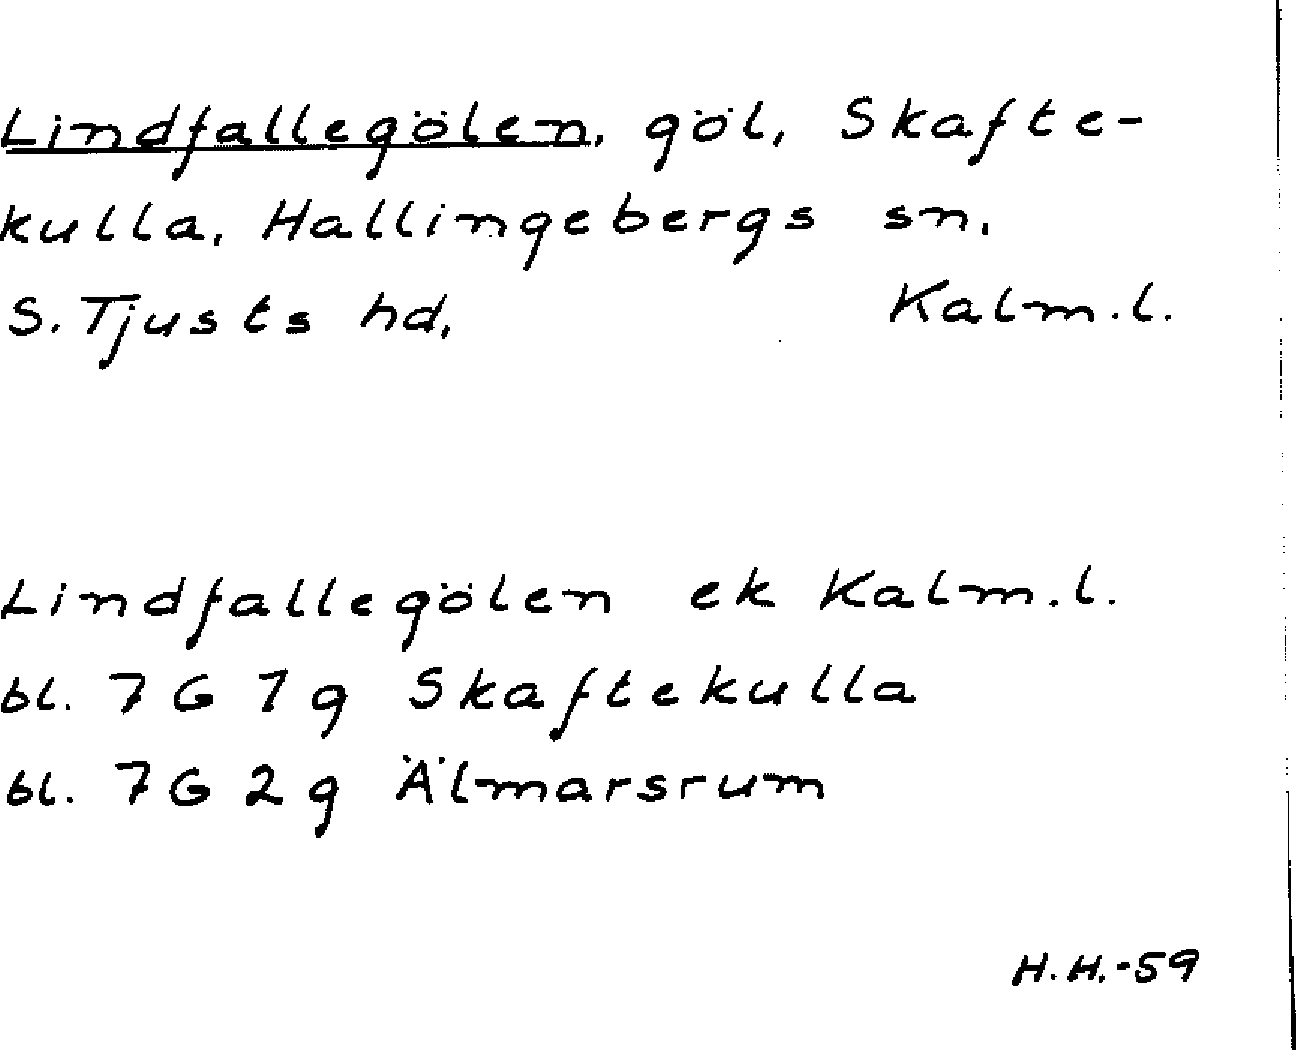 Lindfallegölen, göl, Skafte-
kulla, Hallingebergs sn,
S. Tjusts hd, Kalm.l.
Lindfallegölen ek Kalm.l.
bl. 7 G 1 g Skaftekulla
bl. 7 G 2 g Älmarsrum
H.H.-59